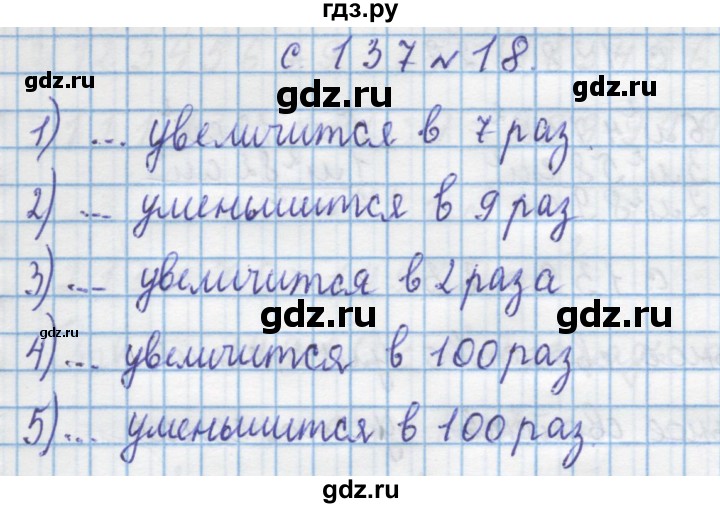 гдз.ру
с. 137 № 18.
gdz.ru gdz.ru gdz.ru
1) ... увеличится в 7 раз.
2) ... уменьшится в 9 раз
gdz.ru gdz.ru
3) ... увеличится в 2 раза
gdz.ru gdz.ru gdz.ru
4) ... увеличится в 100 раз
5) ... уменьшится в 100 раз.
gdz.ru
gdz.ru